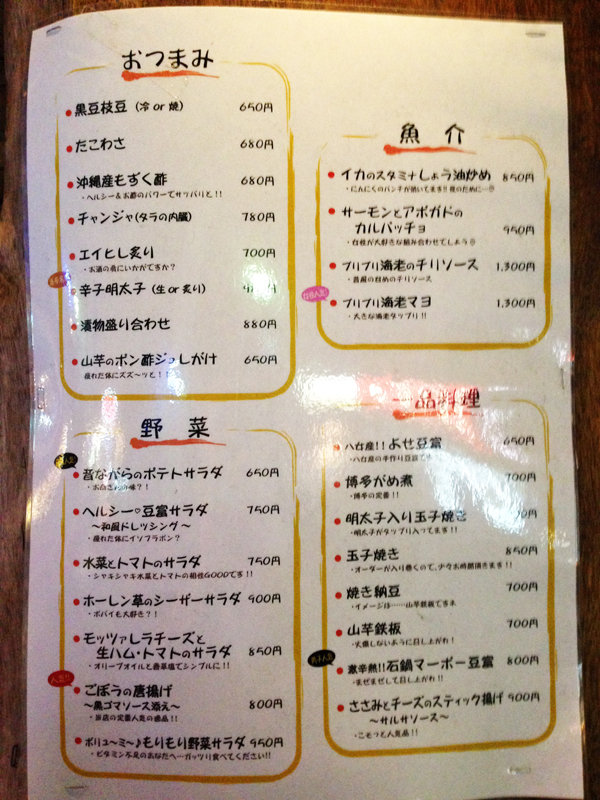 おつまみ
黒豆枝豆 (冷 or 焼) 650円
たこわさ 680円
沖縄産もずく酢 680円
・ヘルシー&お酢のパワーでサッパリと!!
チャンジャ(タラの内臓) 780円
エイヒレ炙り 700円
・お酒の肴にいかがですか?
辛子明太子 (生 or 炙り)
漬物盛り合わせ 880円
山芋のポン酢ジュレがけ 650円
疲れた体にズズ〜ッと!!
野菜
昔ながらのポテトサラダ 650円
ヘルシー♡豆富サラダ 750円
〜和風ドレッシング〜
・疲れた体にイソフラボン?
水菜とトマトのサラダ 750円
・シャキシャキ水菜とトマトの相性GOODです!!
ホーレン草のシーザーサラダ 900円
・ポパイも大好き?!
モッツァレラチーズと
生ハム・トマトのサラダ 850円
・オリーブオイルと岩塩でシンプルに!!
人気!!
ごぼうの唐揚げ
〜黒ゴマソース添え〜 800円
・当店の定番人気の逸品!!
ボリュ〜ミ〜♪もりもり野菜サラダ 950円
・ビタミン不足のあなたへ…ガッツリ食べてください!!
魚介
イカのスタミナしょう油炒め 850円
・にんにくのパンチが効いてます!! 夜のために…
サーモンとアボガドの
カルパッチョ 950円
・女性が大好きな組み合わせでしょう
プリプリ海老のチリソース 1,300円
・昔風の甘めのチリソース
女性人気!
プリプリ海老マヨ 1,300円
・大きな海老タップリ!!
一品料理
八女産!!よせ豆富 650円
・八女産の手作り豆富です
博多がめ煮 700円
・博多の定番!!
明太子入り玉子焼き
・明太子がタップリ入ってます!!
玉子焼き 850円
・オーダーが入り巻くので、少々お時間頂きます!!
焼き納豆 700円
・イメージは……山芋鉄板ですネ
山芋鉄板 700円
・火傷しないように召し上がれ!
男子人気
激辛熱!!石鍋マーボー豆富 800円
・まぜまぜして召し上がれ!!
ささみとチーズのスティック揚げ 900円
〜サルサソース〜
・こそっと人気品!!